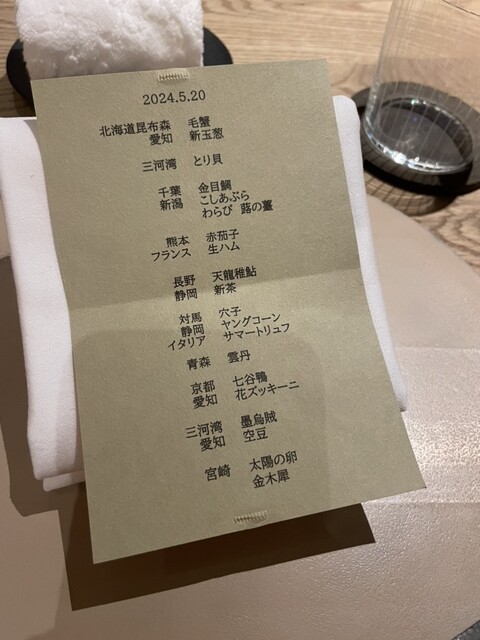 2024.5.20
北海道昆布森 毛蟹
愛知 新玉葱
三河湾 とり貝
千葉 金目鯛
新潟 こしあぶら
わらび 蕗の薹
熊本 赤茄子
フランス 生ハム
長野 天龍稚鮎
静岡 新茶
対馬 穴子
静岡 ヤングコーン
イタリア サマートリュフ
青森 雲丹
京都 七谷鴨
愛知 花ズッキーニ
三河湾 墨烏賊
愛知 空豆
宮崎 太陽の卵
金木犀